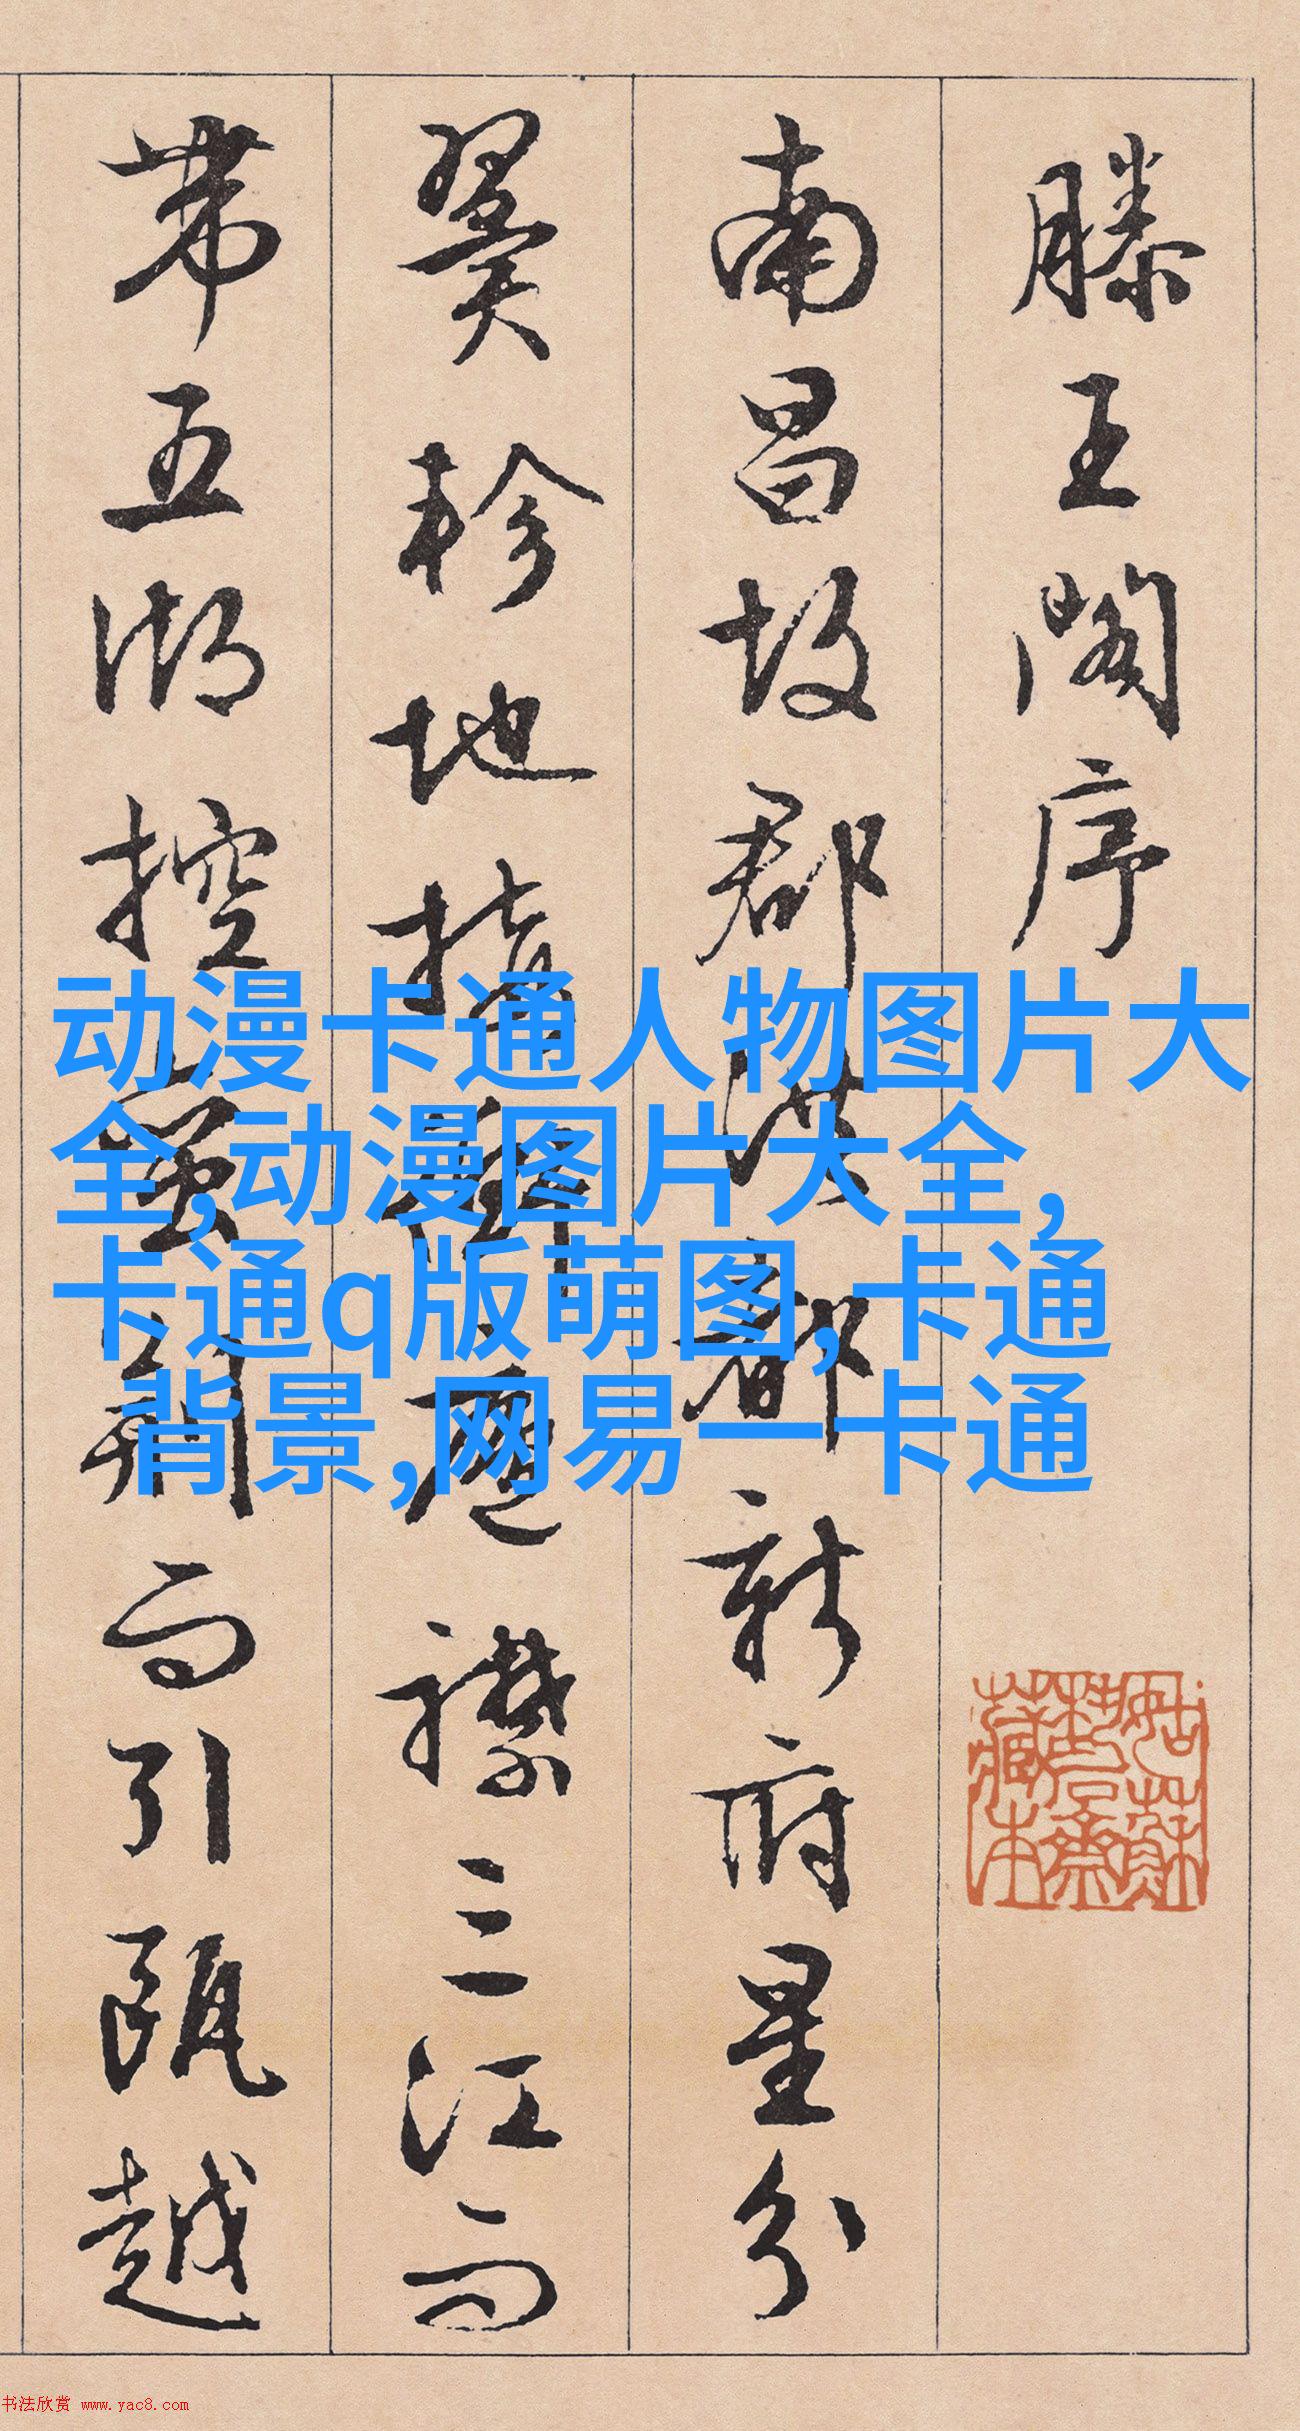 滕王閣序
南昌故郡洪都新府星分
翼軫地接衡廬襟三江而
帶五湖控蠻荊而引甌越
动漫卡通人物图片大
全,动漫图片大全,
卡通q版萌图,卡通
背景,网易一卡通
书法欣赏 www.yac8.com